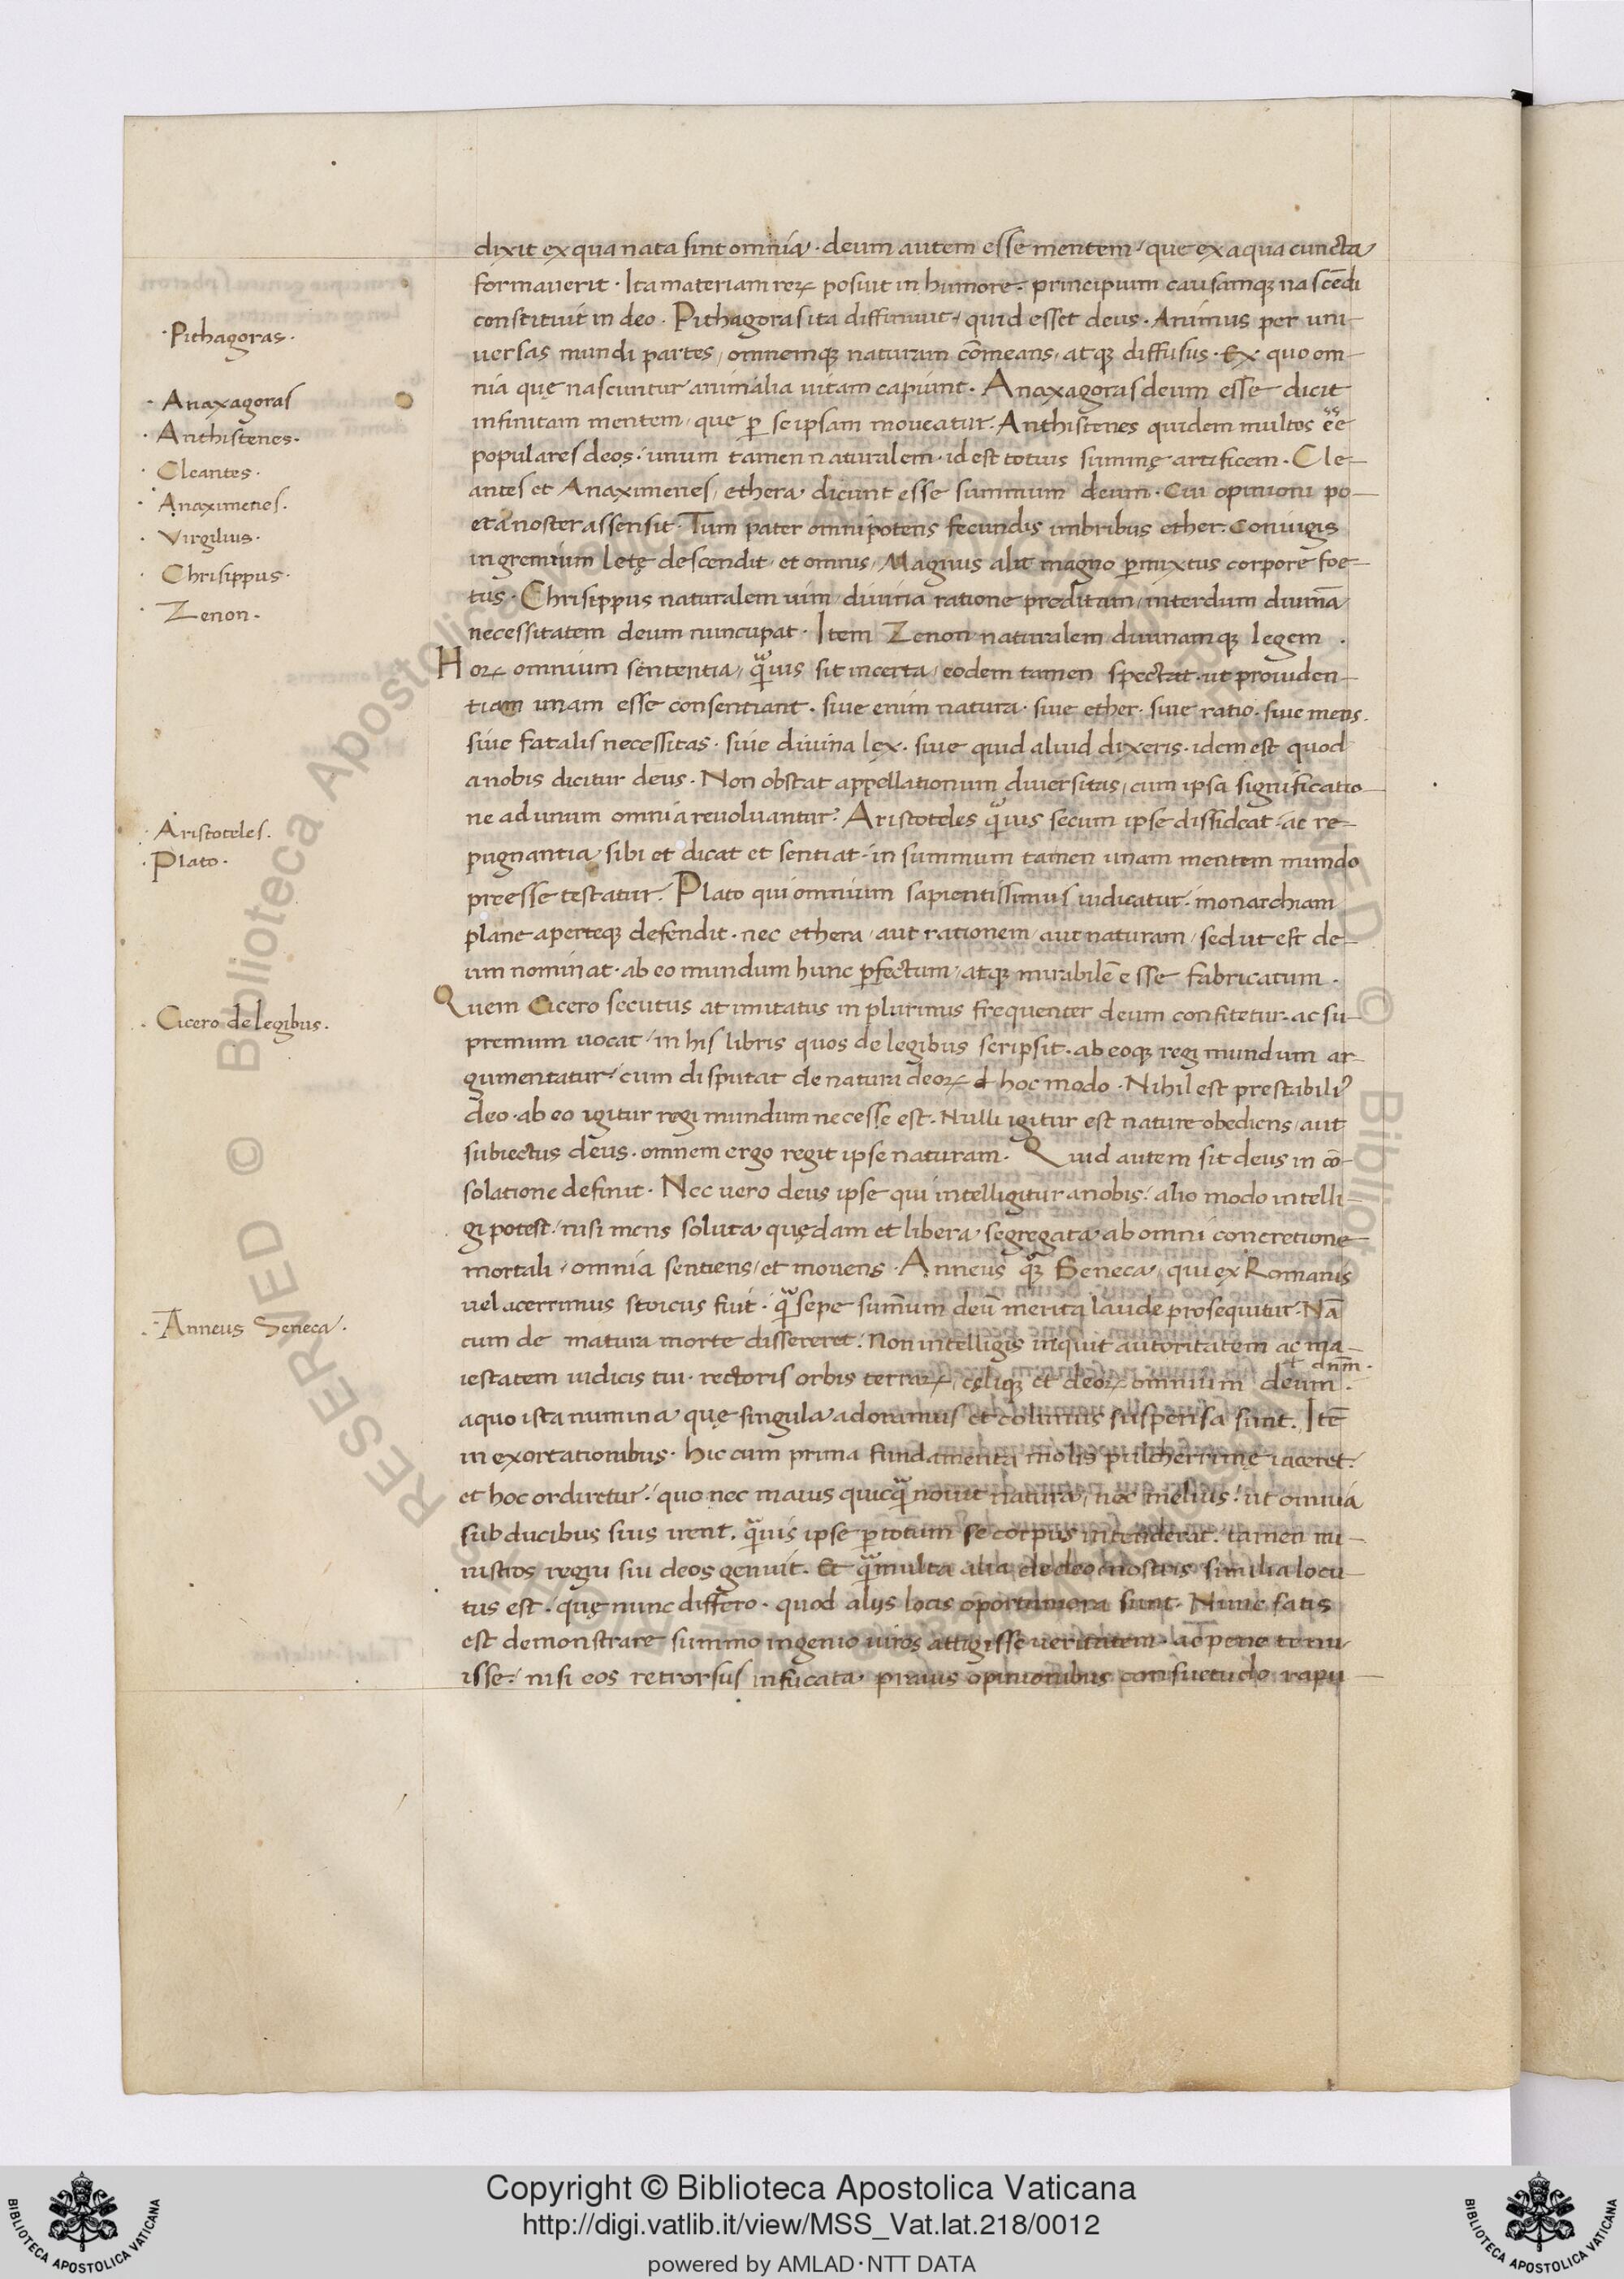 dixit ex qua nata sint omnia · deum autem esse mentem / que ex aqua cuncta
formauerit · Ita materiam reꝝ posuit in humore · principium causamqꝫ nascẽdi
constituit in deo · Pithagoras ita diffiniuit / quid esset deus · Animus per uni-
uersas mundi partes / omnemqꝫ naturam cõmeans / atqꝫ diffusus · Ex quo om-
nia quę nascuntur animalia uitam capiunt · Anaxagoras deum esse dicit
infinitam mentem / que ꝑ se ipsam moueatur · Anthistenes quidem multos ẽẽ
populares deos · unum tamen naturalem · id est totius summę artificem · Cle-
antes et Anaximenes / ethera dicunt esse summum deum · Cui opinioni po-
eta noster assensit · Tum pater omnipotens fecundis imbribus ether · Coniugis
in gremium letę descendit · et omnis / Magnus alit magno ꝑmixtus corpore foe-
tus · Chrisippus naturalem uim / diuina ratione preditam / interdum diuinã
necessitatem deum nuncupat · Item Zenon naturalem diuinamqꝫ legem ·
Hoꝝ omnium sententia / q̃uis sit incerta / eodem tamen spectat · ut prouiden-
tiam unam esse consentiant · siue enim natura · siue ether · siue ratio · siue mens ·
siue fatalis necessitas · siue diuina lex · siue quid aliud dixeris · idem est quod
a nobis dicitur deus · Non obstat appellationum diuersitas / cum ipsa significatio-
ne ad unum omnia reuoluantur · Aristoteles q̃uis secum ipse dissideat · ac re-
pugnantia sibi et dicat et sentiat · in summum tamen unam mentem mundo
preesse testatur · Plato qui omnium sapientissimus iudicatur · monarchiam
plane aperteqꝫ defendit · nec ethera / aut rationem / aut naturam / sed ut est de-
um nominat · ab eo mundum hunc ꝑfectum / atqꝫ mirabilẽ esse fabricatum ·
Quem Cicero secutus at imitatus in plurimis frequenter deum confitetur · ac su-
premum uocat / in his libris quos de legibus scripsit · ab eoqꝫ regi mundum ar-
gumentatur / cum disputat de natura deoꝝ hoc modo · Nihil est prestabiliꝰ
deo · ab eo igitur regi mundum necesse est · Nulli igitur est nature obediens / aut
subiectus deus · omnem ergo regit ipse naturam · Quid autem sit deus in cõ-
solatione definit · Nec uero deus ipse qui intelligitur a nobis / alio modo intelli-
gi potest / nisi mens soluta quędam et libera / segregata ab omni concretione
mortali / omnia sentiens / et mouens · Anneus q̃qꝫ Seneca / qui ex Romanis
uel acerrimus stoicus fuit · q̃ sepe sum̃um deũ merita laude prosequitur · Nã
cum de matura morte dissereret · Non intelligis inquit autoritatem ac ma-
dñm ·
iestatem iudicis tui · rectoris orbis terraꝝ / cęliqꝫ et deoꝝ omnium deum ·
a quo ista numina quę singula adoramus et colimus suspensa sunt · Itẽ
in exortationibus · hic cum prima fundamenta molis pulcherrimę iaceret ·
et hoc ordiretur / quo nec maius quicq̃ nouit natura / nec melius / ut omnia
sub ducibus suis irent · q̃uis ipse ꝑ totum se corpus intenderat · tamen mi-
nistros regni sui deos genuit · Et q̃ multa alia de deo nostris similia locu-
tus est · quę nunc differo · quod alijs locis oportuniora sunt · Nunc satis
est demonstrare summo ingenio uiros attigisse ueritatem · ac pene tenu-
isse · nisi eos retrorsus infucata prauis opinionibus consuetudo rapu-
· Pithagoras ·
· Anaxagoras
· Anthistenes ·
· Cleantes ·
· Anaximenes ·
· Virgilius ·
· Chrisippus ·
· Zenon ·
· Aristoteles ·
· Plato ·
· Cicero de legibus ·
· Anneus Seneca ·
Copyright © Biblioteca Apostolica Vaticana
http://digi.vatlib.it/view/MSS_Vat.lat.218/0012
powered by AMLAD·NTT DATA
BIBLIOTECA APOSTOLICA VATICANA
BIBLIOTECA APOSTOLICA VATICANA